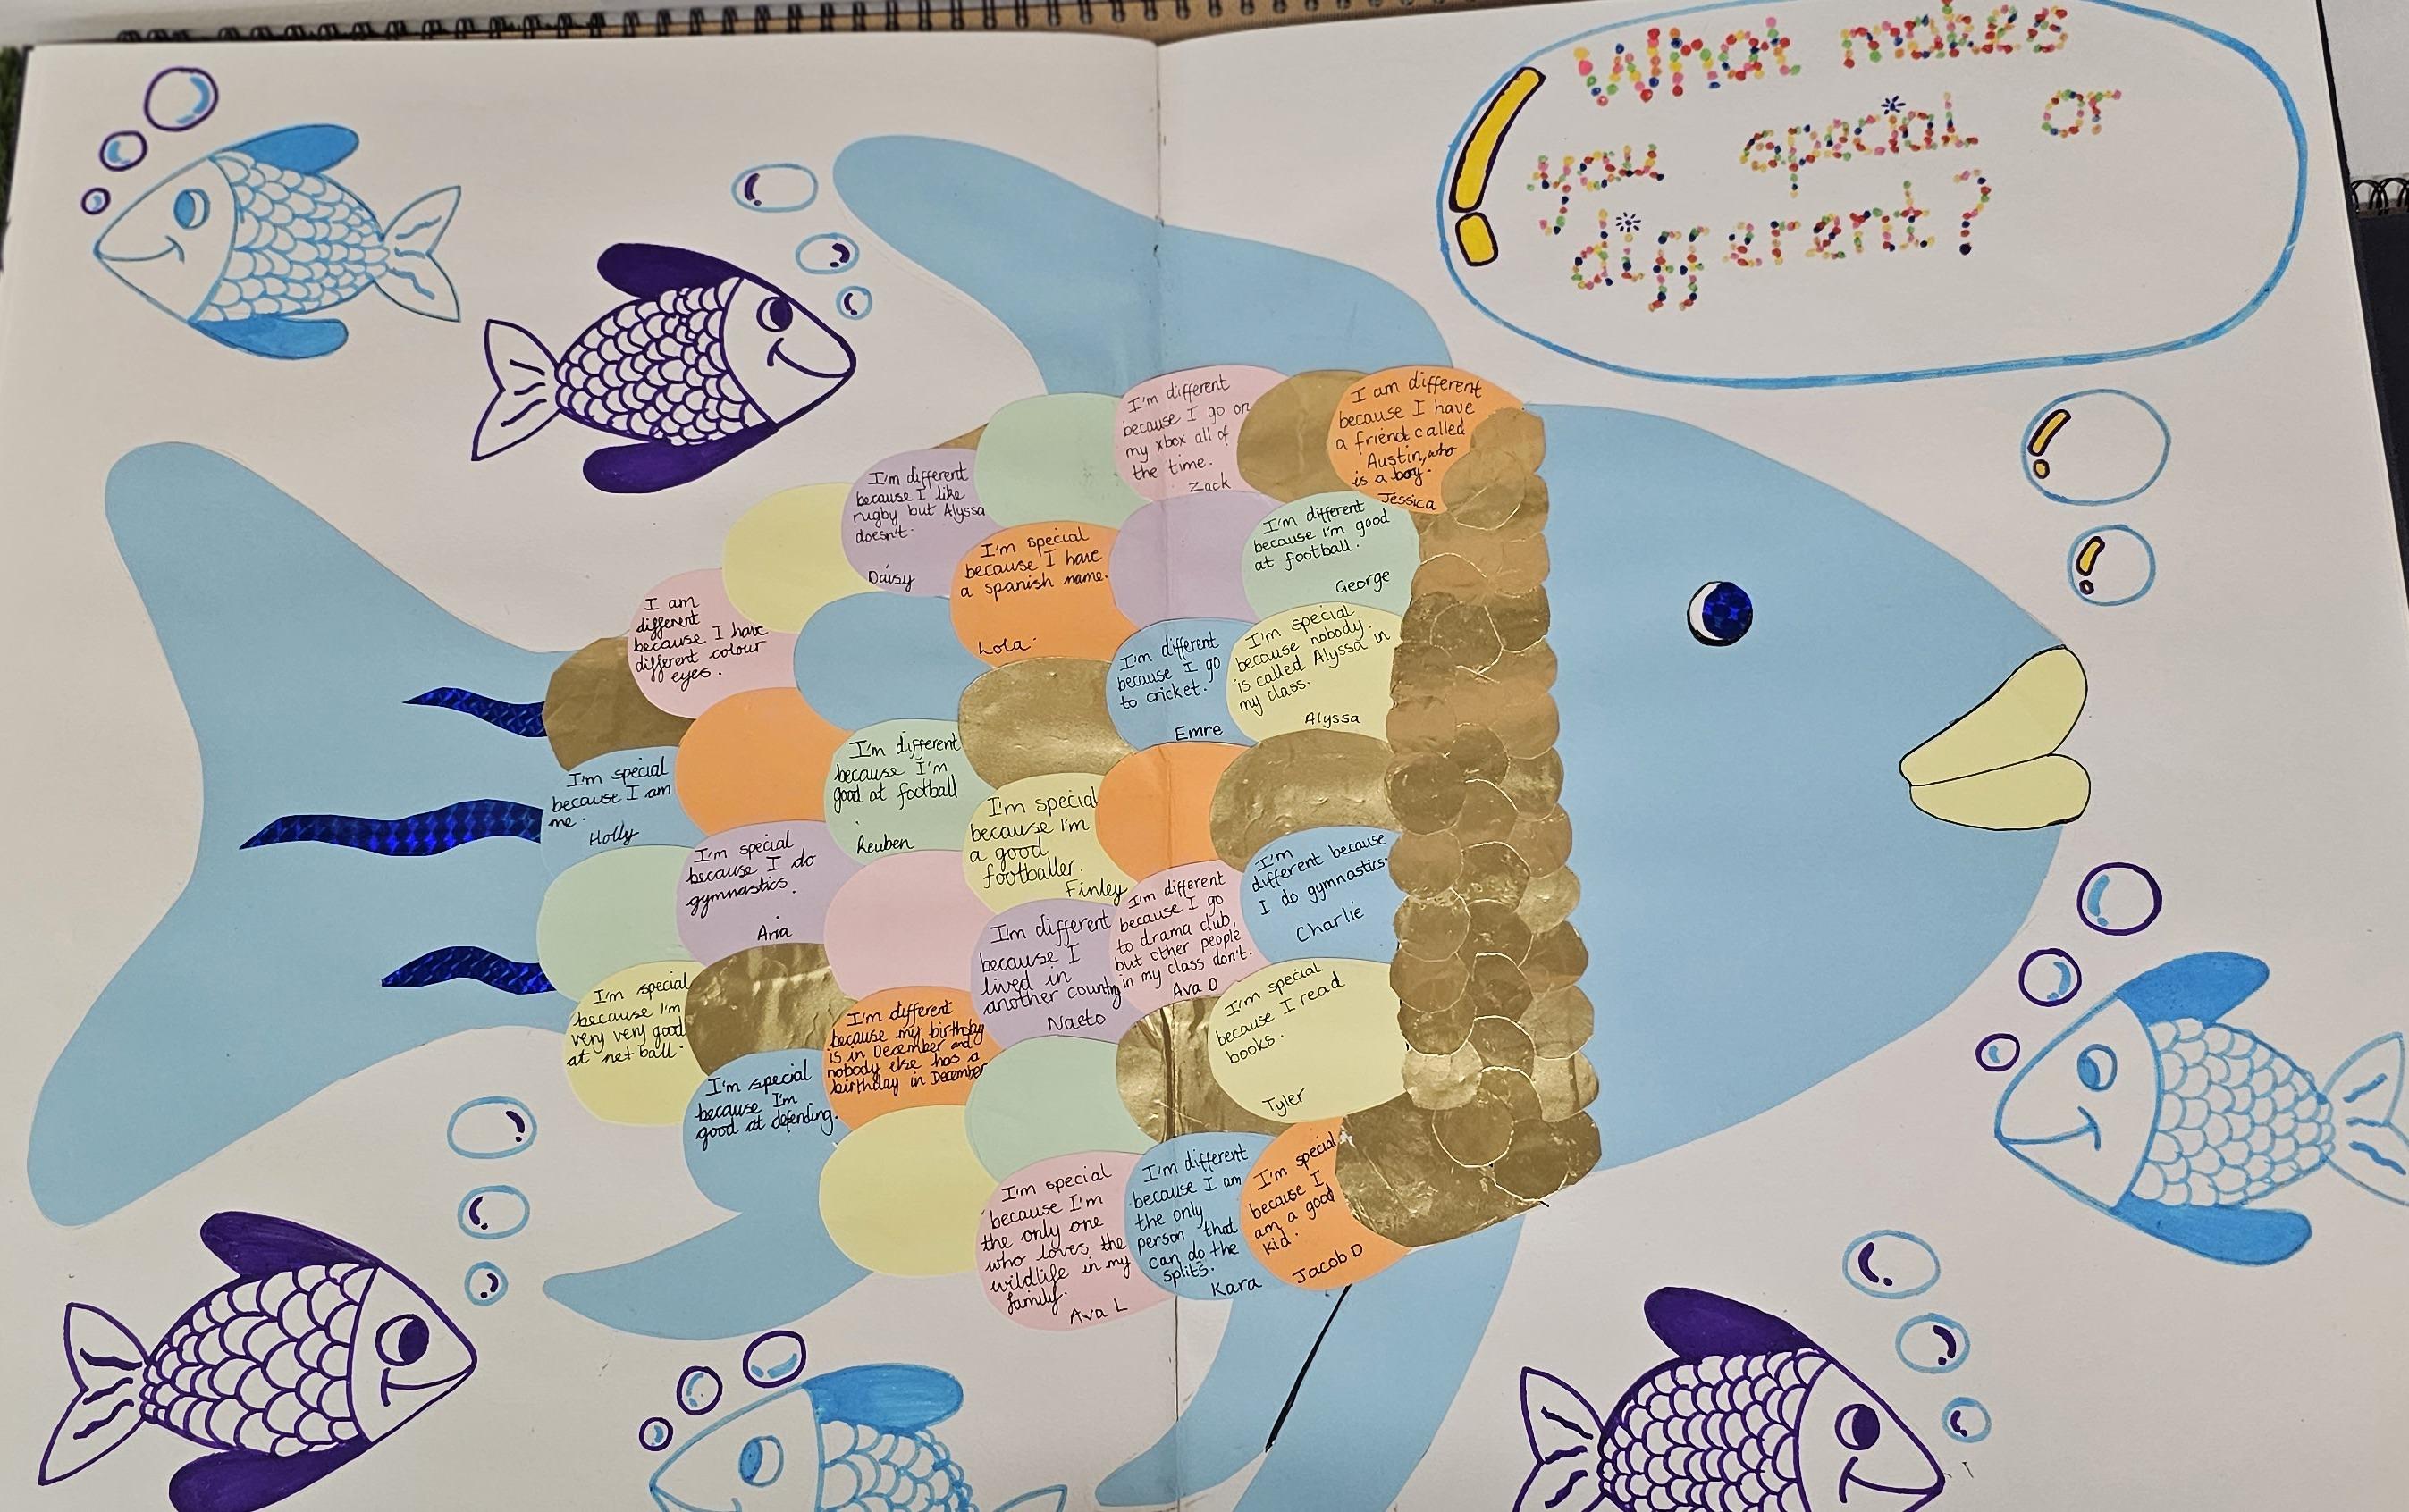 What makes
you special or
different?
I'm different
because I go on
my xbox all of
the time.
Zack
I am different
because I have
a friend called
Austin, who
is a boy.
Jessica
I'm different
because I like
rugby but Alyssa
doesn't.
Daisy
I'm special
because I have
a spanish name.
Lola
I'm different
because i'm good
at football.
George
I am
different
because I have
different colour
eyes.
I'm different
because I go
to cricket.
Emre
I'm special
because nobody
is called Alyssa in
my class.
Alyssa
I'm special
because I am
me.
Holly
I'm different
because I'm
good at football
Reuben
I'm special
because I'm
a good
footballer.
Finley
I'm special
because I do
gymnastics.
Aria
I'm
different because
I do gymnastics.
Charlie
I'm different
because I
lived in
another country
Naeto
I'm different
because I go
to drama club,
but other people
in my class don't.
Ava D
I'm special
because I'm
very very good
at net ball.
I'm different
because my birthday
is in December and
nobody else has a
birthday in December
I'm special
because I read
books.
Tyler
I'm special
because I'm
good at defending.
I'm special
because I'm
the only one
who loves the
wildlife in my
family.
Ava L
I'm different
because I am
the only
person that
can do the
splits.
Kara
I'm special
because I
am a good
kid.
Jacob D